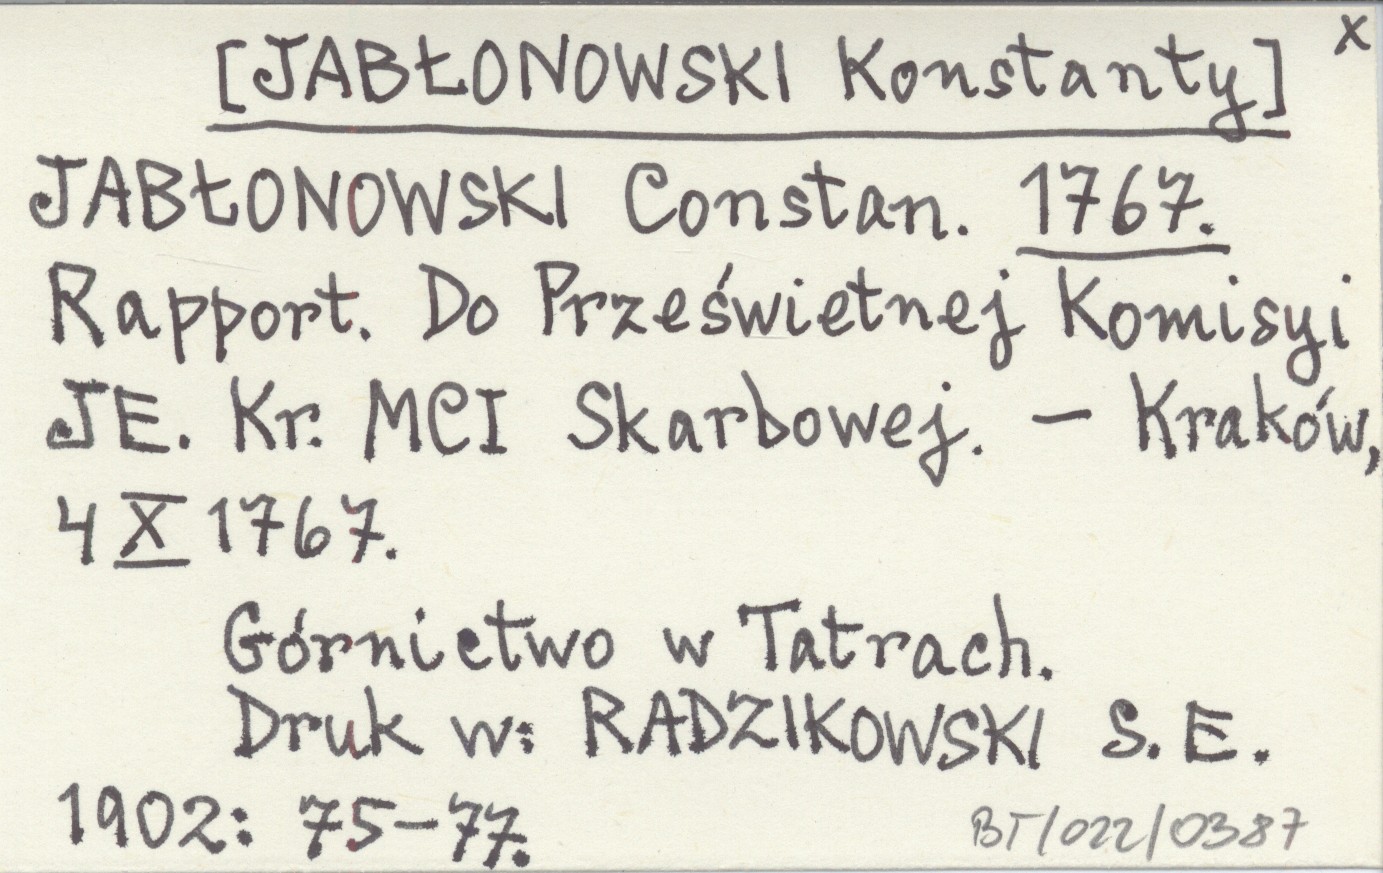 x
[JABŁONOWSKI Konstanty]
JABŁONOWSKI Constan. 1767.
Rapport. Do Prześwietnej Komisyi
JE. Kr. MCI Skarbowej. – Kraków,
4 X 1767.
Górnictwo w Tatrach.
Druk w: RADZIKOWSKI S. E.
1902: 75–77.
BT/022/0387